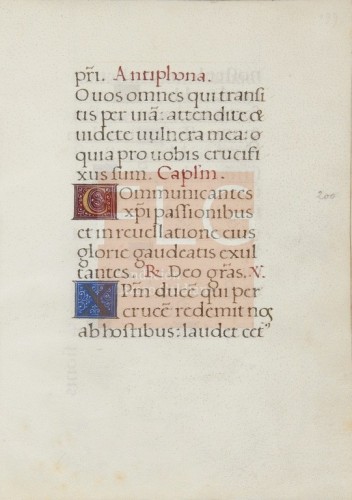 pr̄i. Antiphona.
O uos omnes qui transi
tis per uiā: attendite &
uidete uulnera mea: o
quia pro uobis crucifi
xus sum. Capl̄m.
Communicantes
xp̄i passionibus
et in reuellatione eius
glorie gaudeatis exul
tantes. ℟. Deo grās. V.
Xp̄m ducē qui per
crucē redemit nos
ab hostibus: laudet cet
200